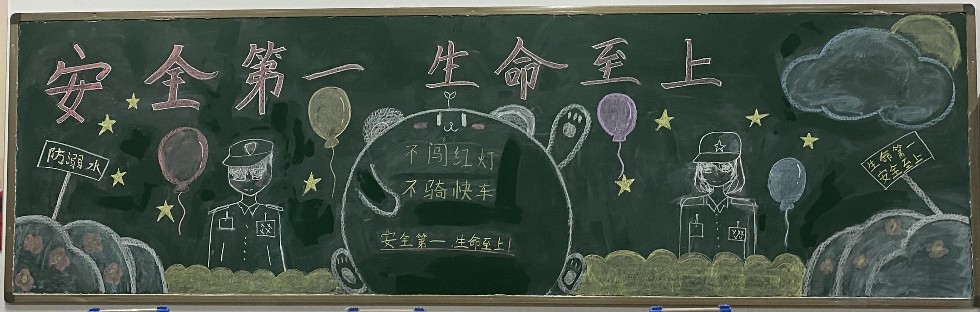 安全第一 生命至上
防溺水
不闯红灯
不骑快车
安全第一.生命至上!
生命第一
安全至上